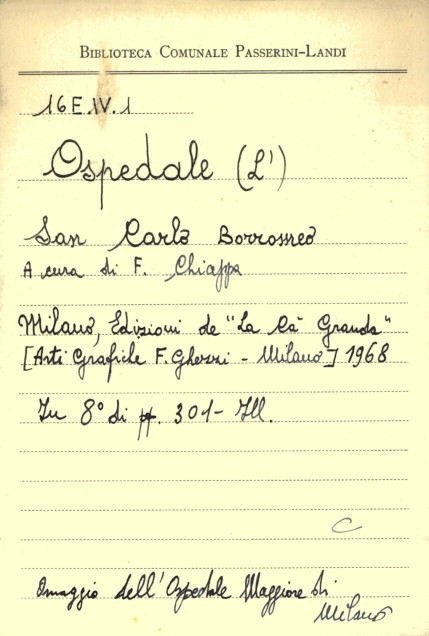 BIBLIOTECA COMUNALE PASSERINI-LANDI
16 E.IV.1
Ospedale (L')
San Carlo Borromeo
A cura di F. Chiappa
Milano, Edizioni de "La Cà Granda"
[Arti Grafiche F. Ghezzi - Milano] 1968
In 8° di pp. 301 - Ill.
C
Omaggio dell'Ospedale Maggiore di
Milano